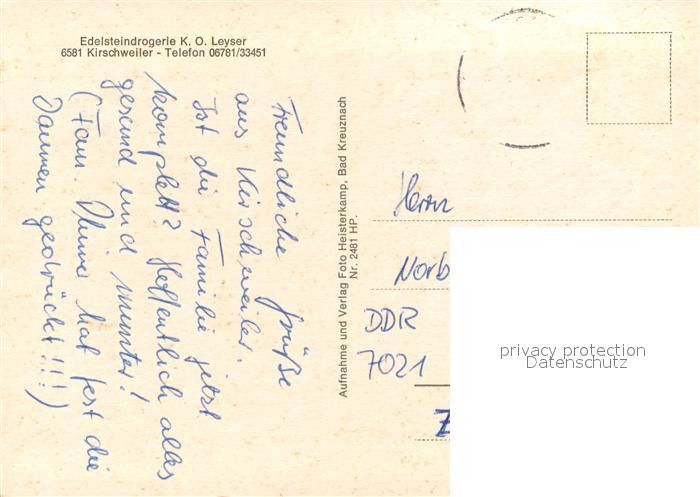 Edelsteindrogerie K. O. Leyser
6581 Kirschweiler - Telefon 06781/33451
Freundliche Grüße
aus Kirschweiler.
Ist die Familie jetzt
komplett? Hoffentlich alles
gesund und munter!
(Fam. hat fest die
Daumen gedrückt!!!)
Aufnahme und Verlag Foto Heisterkamp, Bad Kreuznach
Nr. 2481 HP.
Herrn
Norb
DDR
7021
privacy protection
Datenschutz